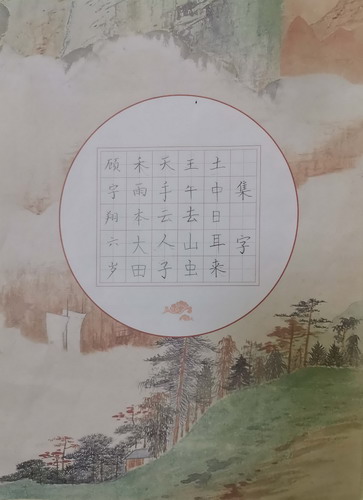 集字
土中日耳来
王午去山虫
天手云人子
禾雨本大田
顾字翔六岁